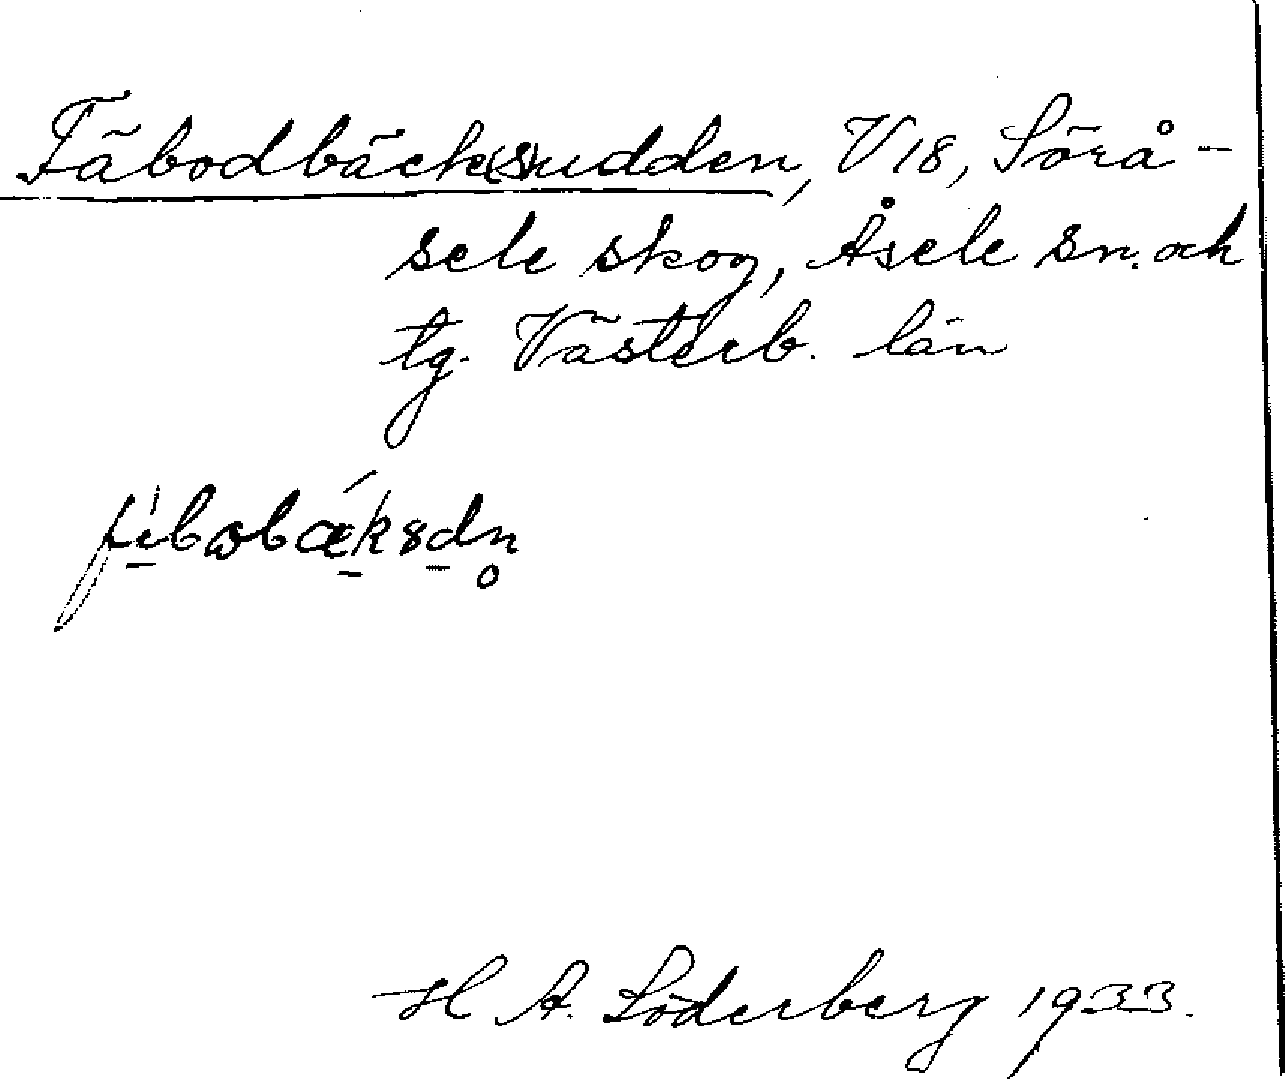 Fäbodbäck(s)udden, V18, Sörå-
sele skog, Åsele sn. och
tg. Västerb. län
H A. Söderberg 1933.